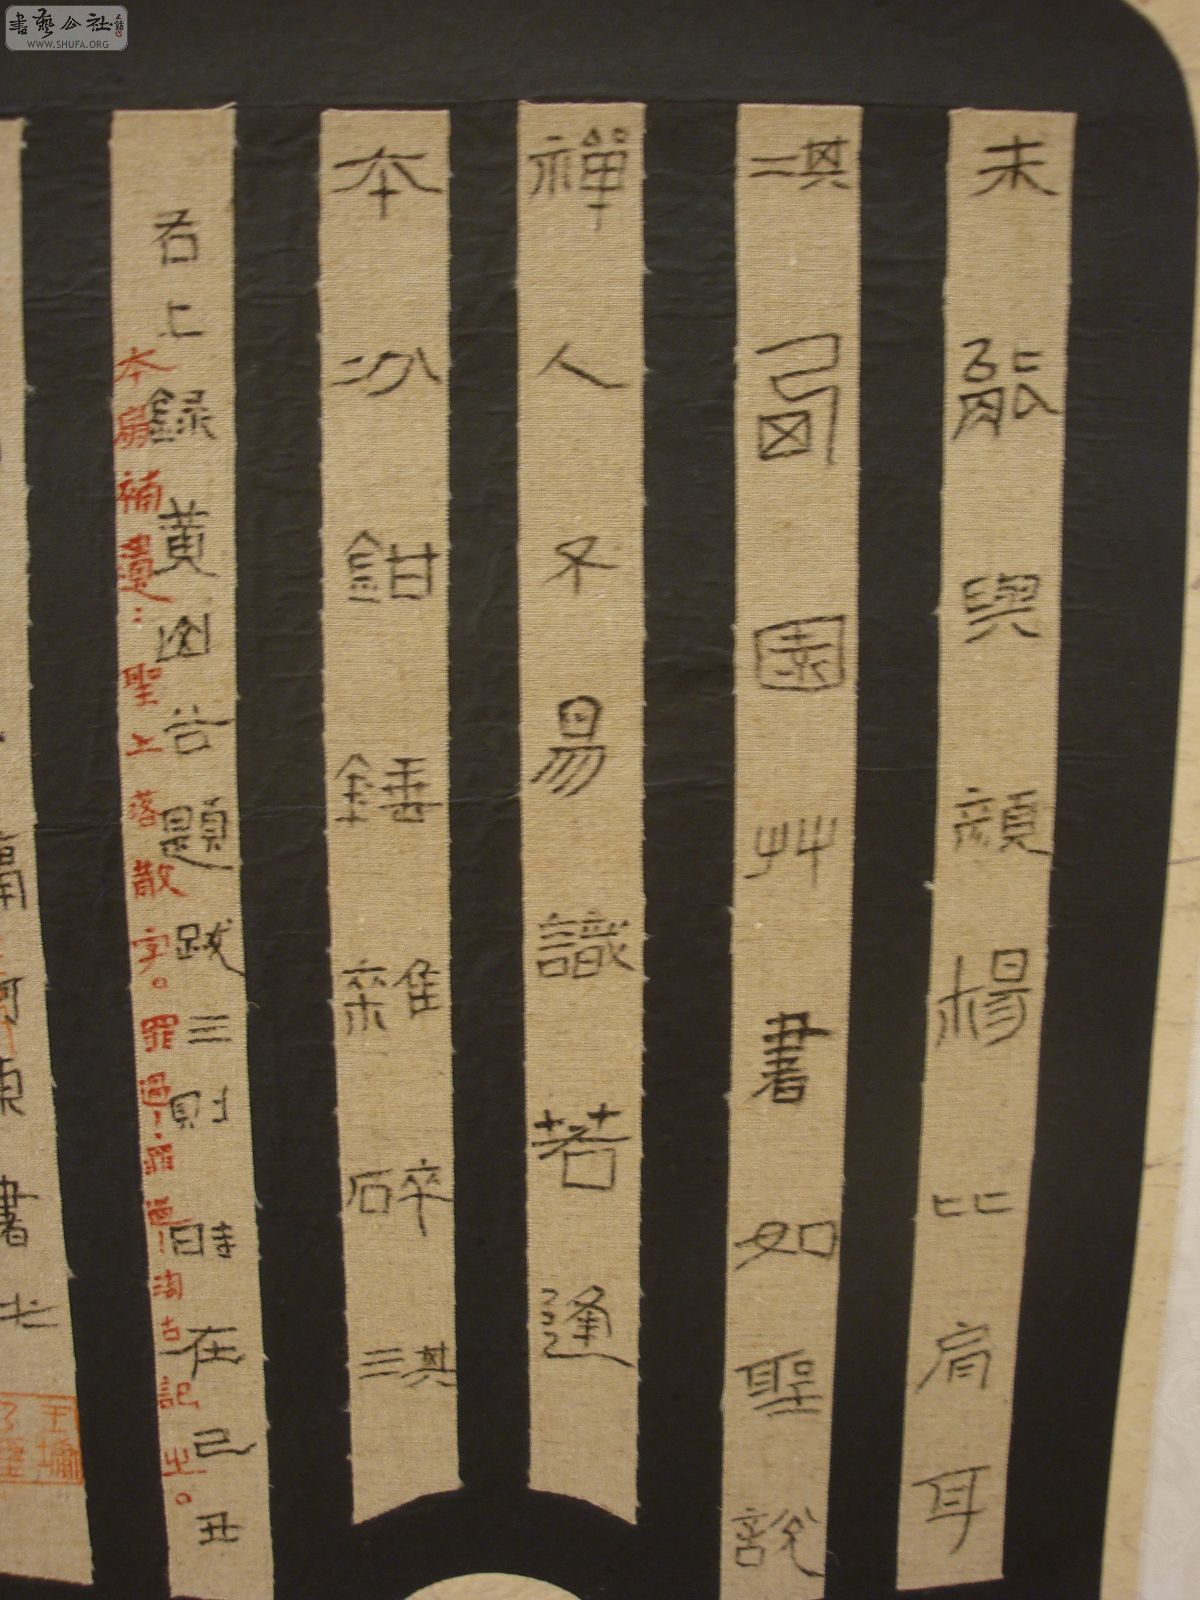 書藝公社
WWW.SHUFA.ORG
未能與顏楊比肩耳
其二
園艸書如聖說
禪人不易識若逢
本分鉗錘雜碎
其三
右上錄黃山谷題跋三則時在己丑
本扇補遺：聖上落散字。罪過，罪過！淘古記之。
東書